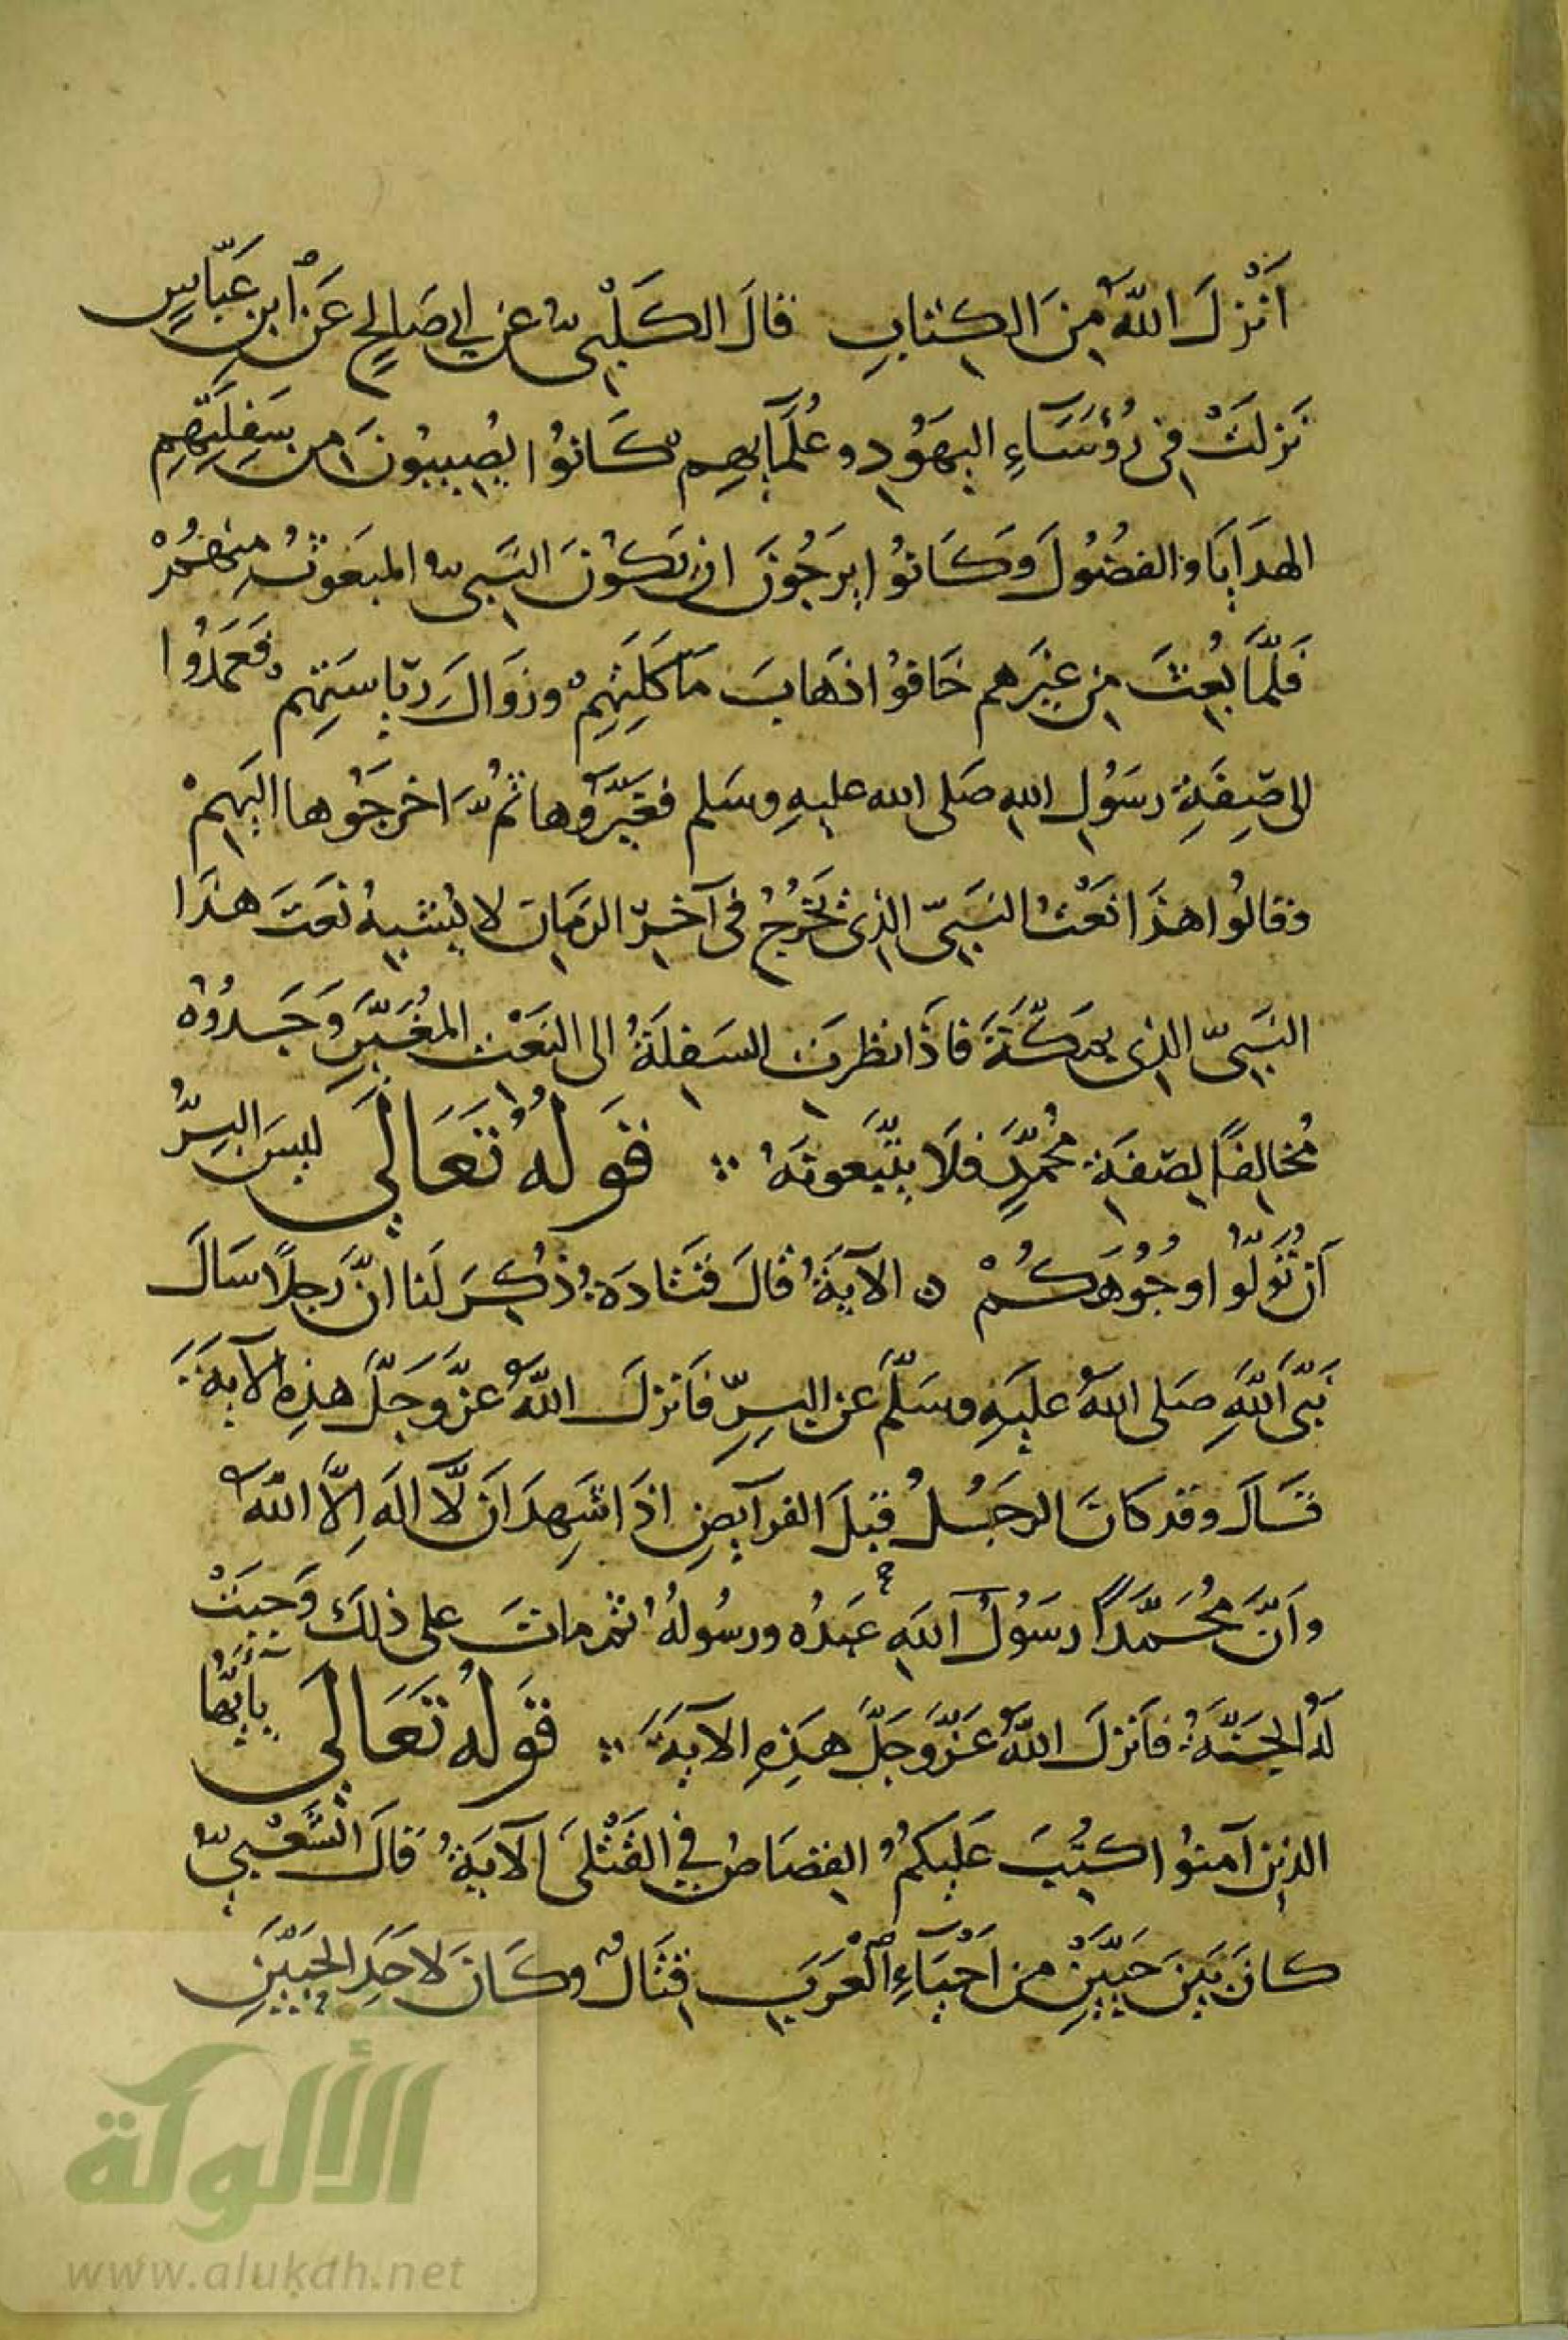 اَنْزَلَ اللّٰهُ مِنَ الكِتَابِ قالَ الكَلْبِىُّ عن ابى صَالِحٍ عَنْ ابنِ عَبّاسٍ
نَزلَتْ فى رُؤسَآءِ اليهَوُدِ وعُلَمآيهِم كَانوُا يُصِيبوُنَ مِن سَفِلَتِهِم
الهدَايَا والفضُوُلَ وَكَانوُا يرَجُونَ ان يَكوُنَ النَّبِىُّ المبَعوُثُ مِنهُمْ
فَلَمَّا بُعِثَ مِن غيَرِهم خَافوُا ذَهَابَ مَأكَلَتِهِمْ وزَوَالَ رِيَاسَتِهِمْ فَعَمَدُوا
الى صِفَةِ رسَوُلِ اللهِ صَلى الله عليهِ وسَلم فغَيَّروُها ثمُّ اخرجَوُها اليَهِمْ
وقالوُا هذَا نَعْتُ النَبِىِّ الذِى يَخْرُجُ فى آخِرِ الزمَانِ لا يُشبِهُ نَعَتَ هذَا
النَبِىِّ الذِى بمَكَّةَ فاذَا نظرَتِ السَفِلَةُ الى النَعْتِ المُغَيَّرِ وَجَدُوُهُ
مُخَالِفًا لِصفَةِ مُحَمَّدٍ فلَا يتَّبَعوُنَهُ قَوْلُهُ تَعَالَى ليسَ البِرُّ
اَن تُوَلُّوا وجُوُهَكُمْ الآيَةُ قَالَ قتَادَةُ ذُكِرَ لنَا انَّ رَجلًا سَالَ
نَبِىَّ اللّٰهِ صَلى اللهُ عليَهِ وسَلَّمَ عن البِرِّ فَانَزلَ اللّٰهُ عزَّ وَجَلَّ هذِهِ الآيةَ
قَالَ وقد كانَ الرجَـُلُ قبلَ الفرآيضِ اذَا شَهِدَ ان لَّا الَهَ اِلَّا اللّٰهُ
واَنَّ مُحُمَّدًا رسَوُلُ اللهِ عَبدُه ورسُولُهُ ثم ماتَ على ذلكَ وَجَبَتْ
لَهُ الجَنَّةُ فاَنزلَ اللّٰهُ عَزَّ وَجَلَّ هَذِهِ الآيةَ قَوْلُهُ تَعَالَى يآَيُّهَا
الذِين آمَنوُا كتُبَ عَليَكمُ القِصَاصُ فى القَتْلَى الآيَةُ قَالَ الشَّعْبِىُّ
كانَ بَينَ حَيَّيْنِ من اَحْيَآءِ الْعَرَبِ قِتَالٌ وكَانَ لاحَدِ الحَيَّيْنِ
الألوكة
www.alukah.net